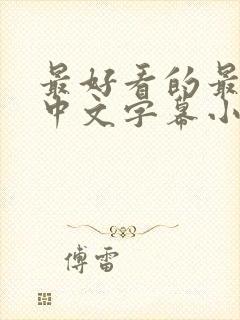 最好看的最
中文字幕小
傅雷